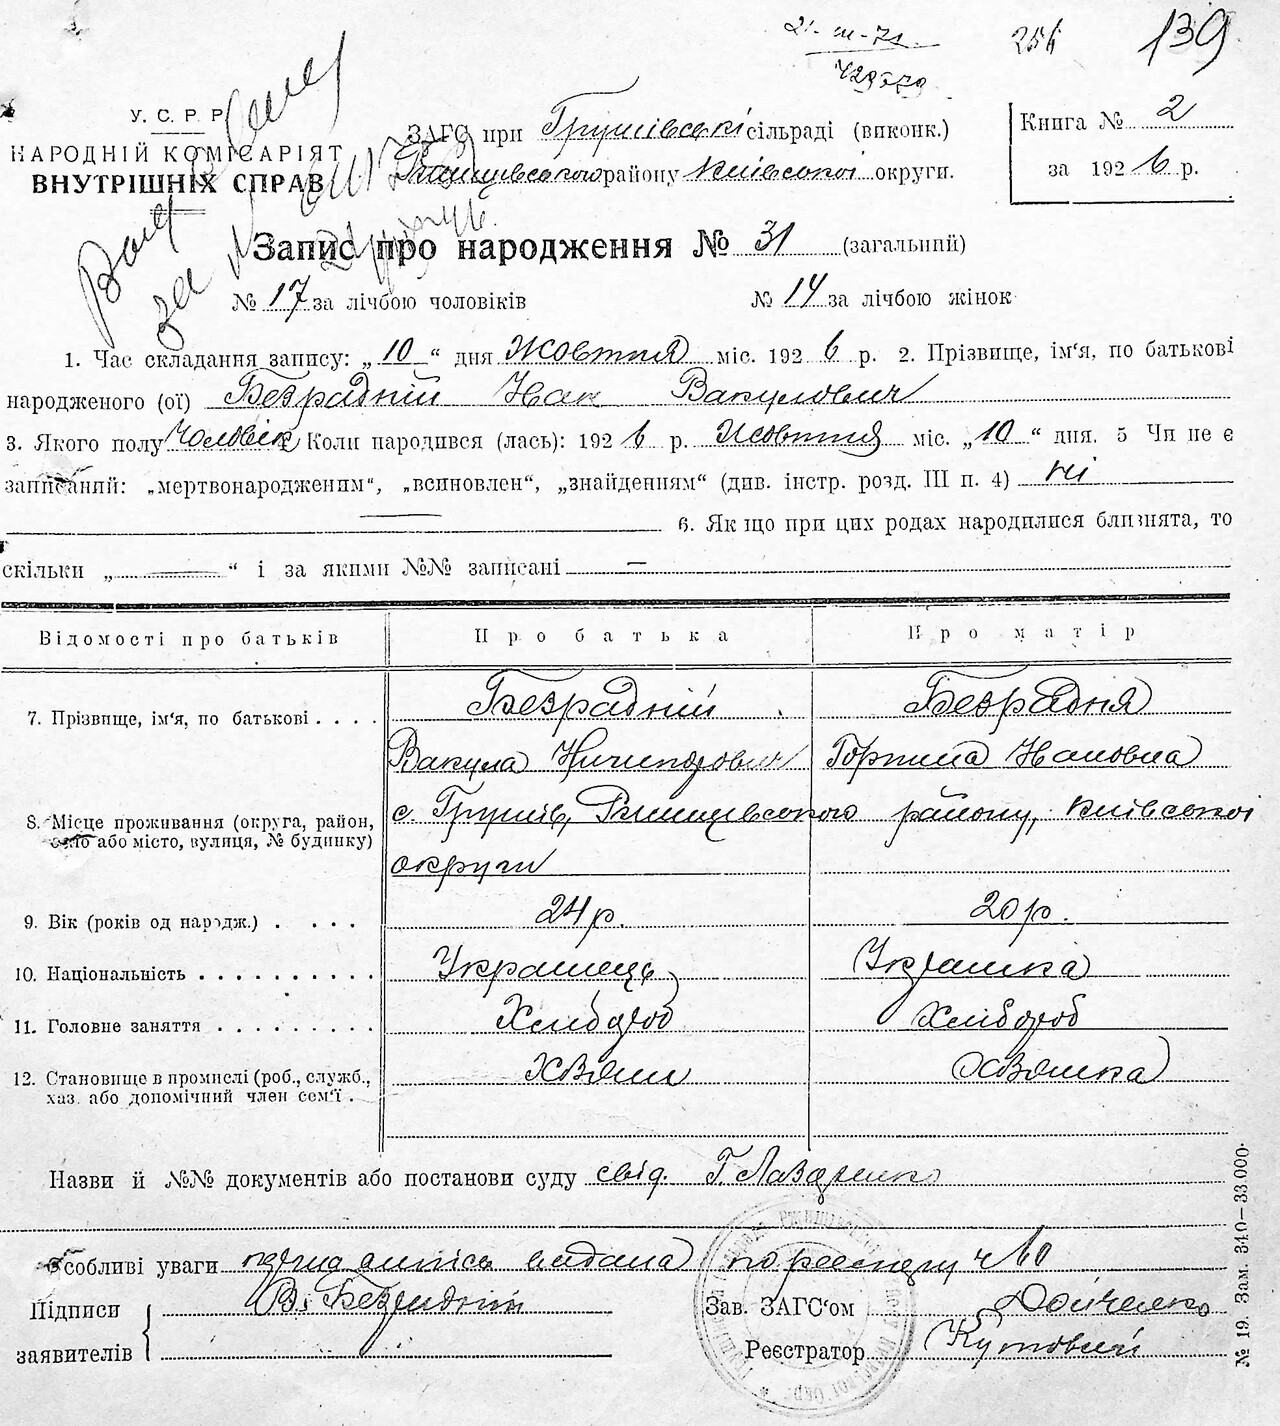 21-III-71
256
139
У. С. Р. Р.
НАРОДНІЙ КОМІСАРІЯТ
ВНУТРІШНІХ СПРАВ
ЗАГС при Грушівські сільраді (виконк.)
Ржищівського району Київської округи.
Книга № 2
за 1926 р.
Запис про народження № 31 (загальний)
№ 17 за лічбою чоловіків № 14 за лічбою жінок
1. Час складання запису: „10“ дня Жовтня міс. 1926 р. 2. Прізвище, ім'я, по батькові
народженого (ої) Безрадній Іван Вакулович
3. Якого полу Чоловік Коли народився (лась): 1926 р. Жовтня міс. „10“ дня. 5 Чи не є
записаний: „мертвонародженим“, „всиновлен“, „знайденням“ (див. інстр. розд. III п. 4) ні
6. Як що при цих родах народилися близнята, то
скільки „ — “ і за якими №№ записані —
Відомості про батьків Про батька Про матір
7. Прізвище, ім'я, по батькові . . . . Безрадній Безрадня
Вакула Ничипорович Горпина Івановна
8. Місце проживання (округа, район, с. Грушів, Ржищівського району, Київської
село або місто, вулиця, № будинку) округи
9. Вік (років од нардж.) . . . . 24 р. 20 р.
10. Національність . . . . . . . . . . Українець Українка
11. Головне заняття . . . . . . . . . Хлібороб Хлібороб
12. Становище в промислі (роб., служб.,
хаз. або допомічний член сем'ї .
Назви й №№ документів або постанови суду свід. Г. Лазаренко
Особливі уваги видана по реестру ч 60
Підписи В. Безрадній Зав. ЗАГС'ом
заявителів Реєстратор Кутовий
№ 19. Зам. 340–33.000.